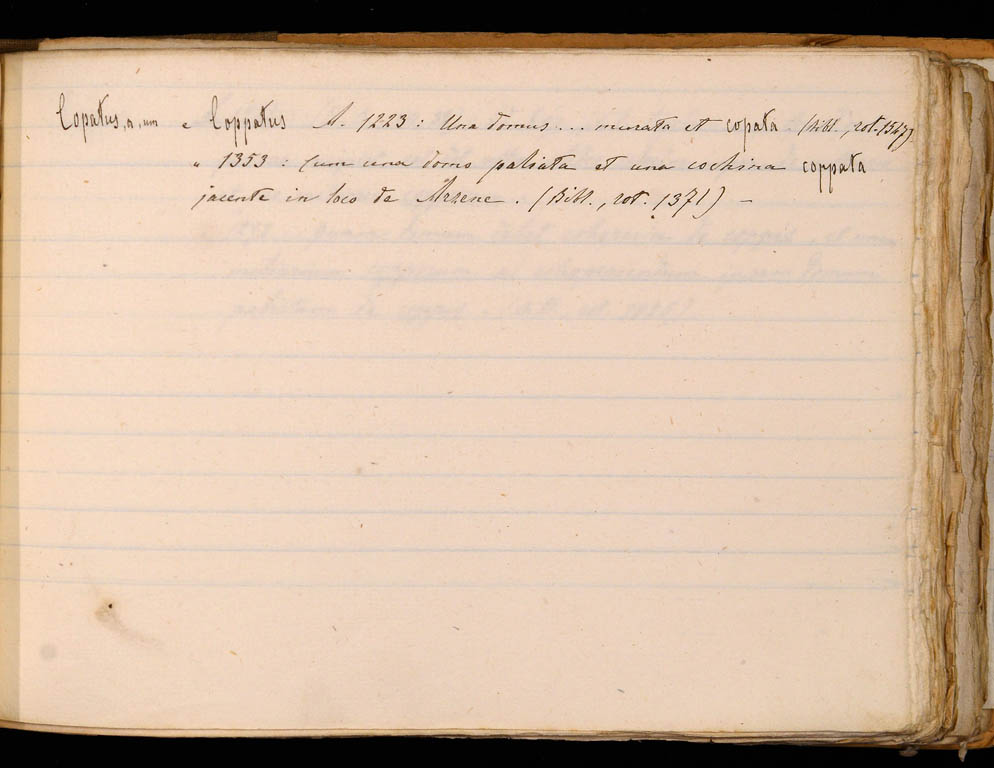 Copatus, a, um e Coppatus A. 1223 : Una domus... murata et copata. (Bibl., rot. 1547).
" 1353 : Cum una domo paliata et una cochina coppata
jacente in loco de Mazene. (Bibl., rot. 1371) –